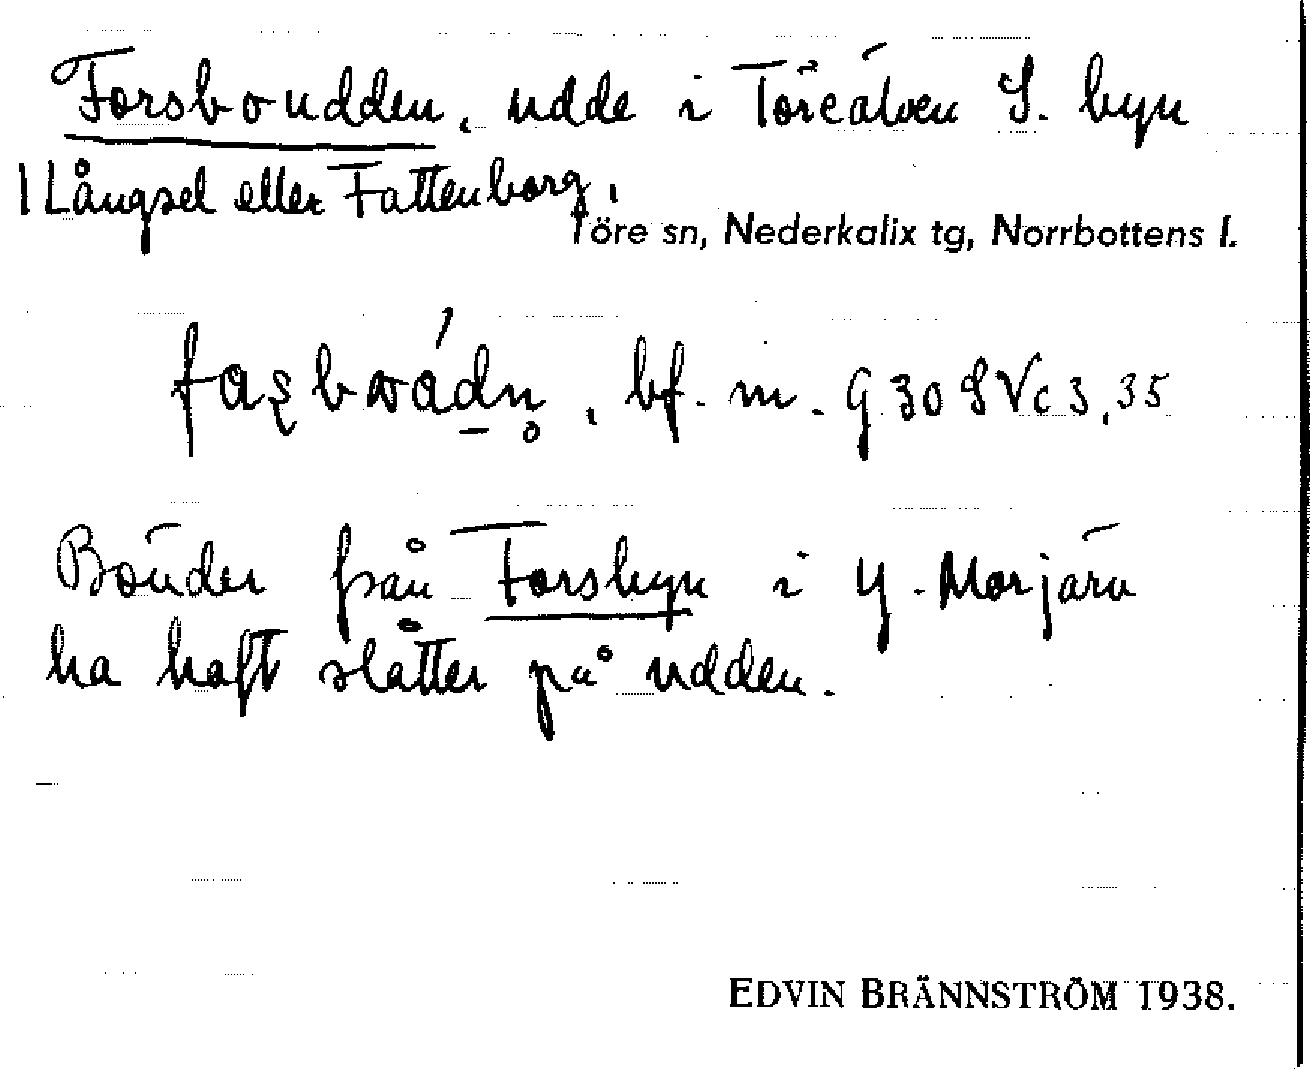 Forsboudden, udde i Töreälven S. byn
| Långsel eller Fattenborg,
Töre sn, Nederkalix tg, Norrbottens l.
bf. m. G 30 S V c 3, 35
Bönder från Forsbyn i Y. Morjärv
ha haft slåtter på udden.
EDVIN BRÄNNSTRÖM 1938.